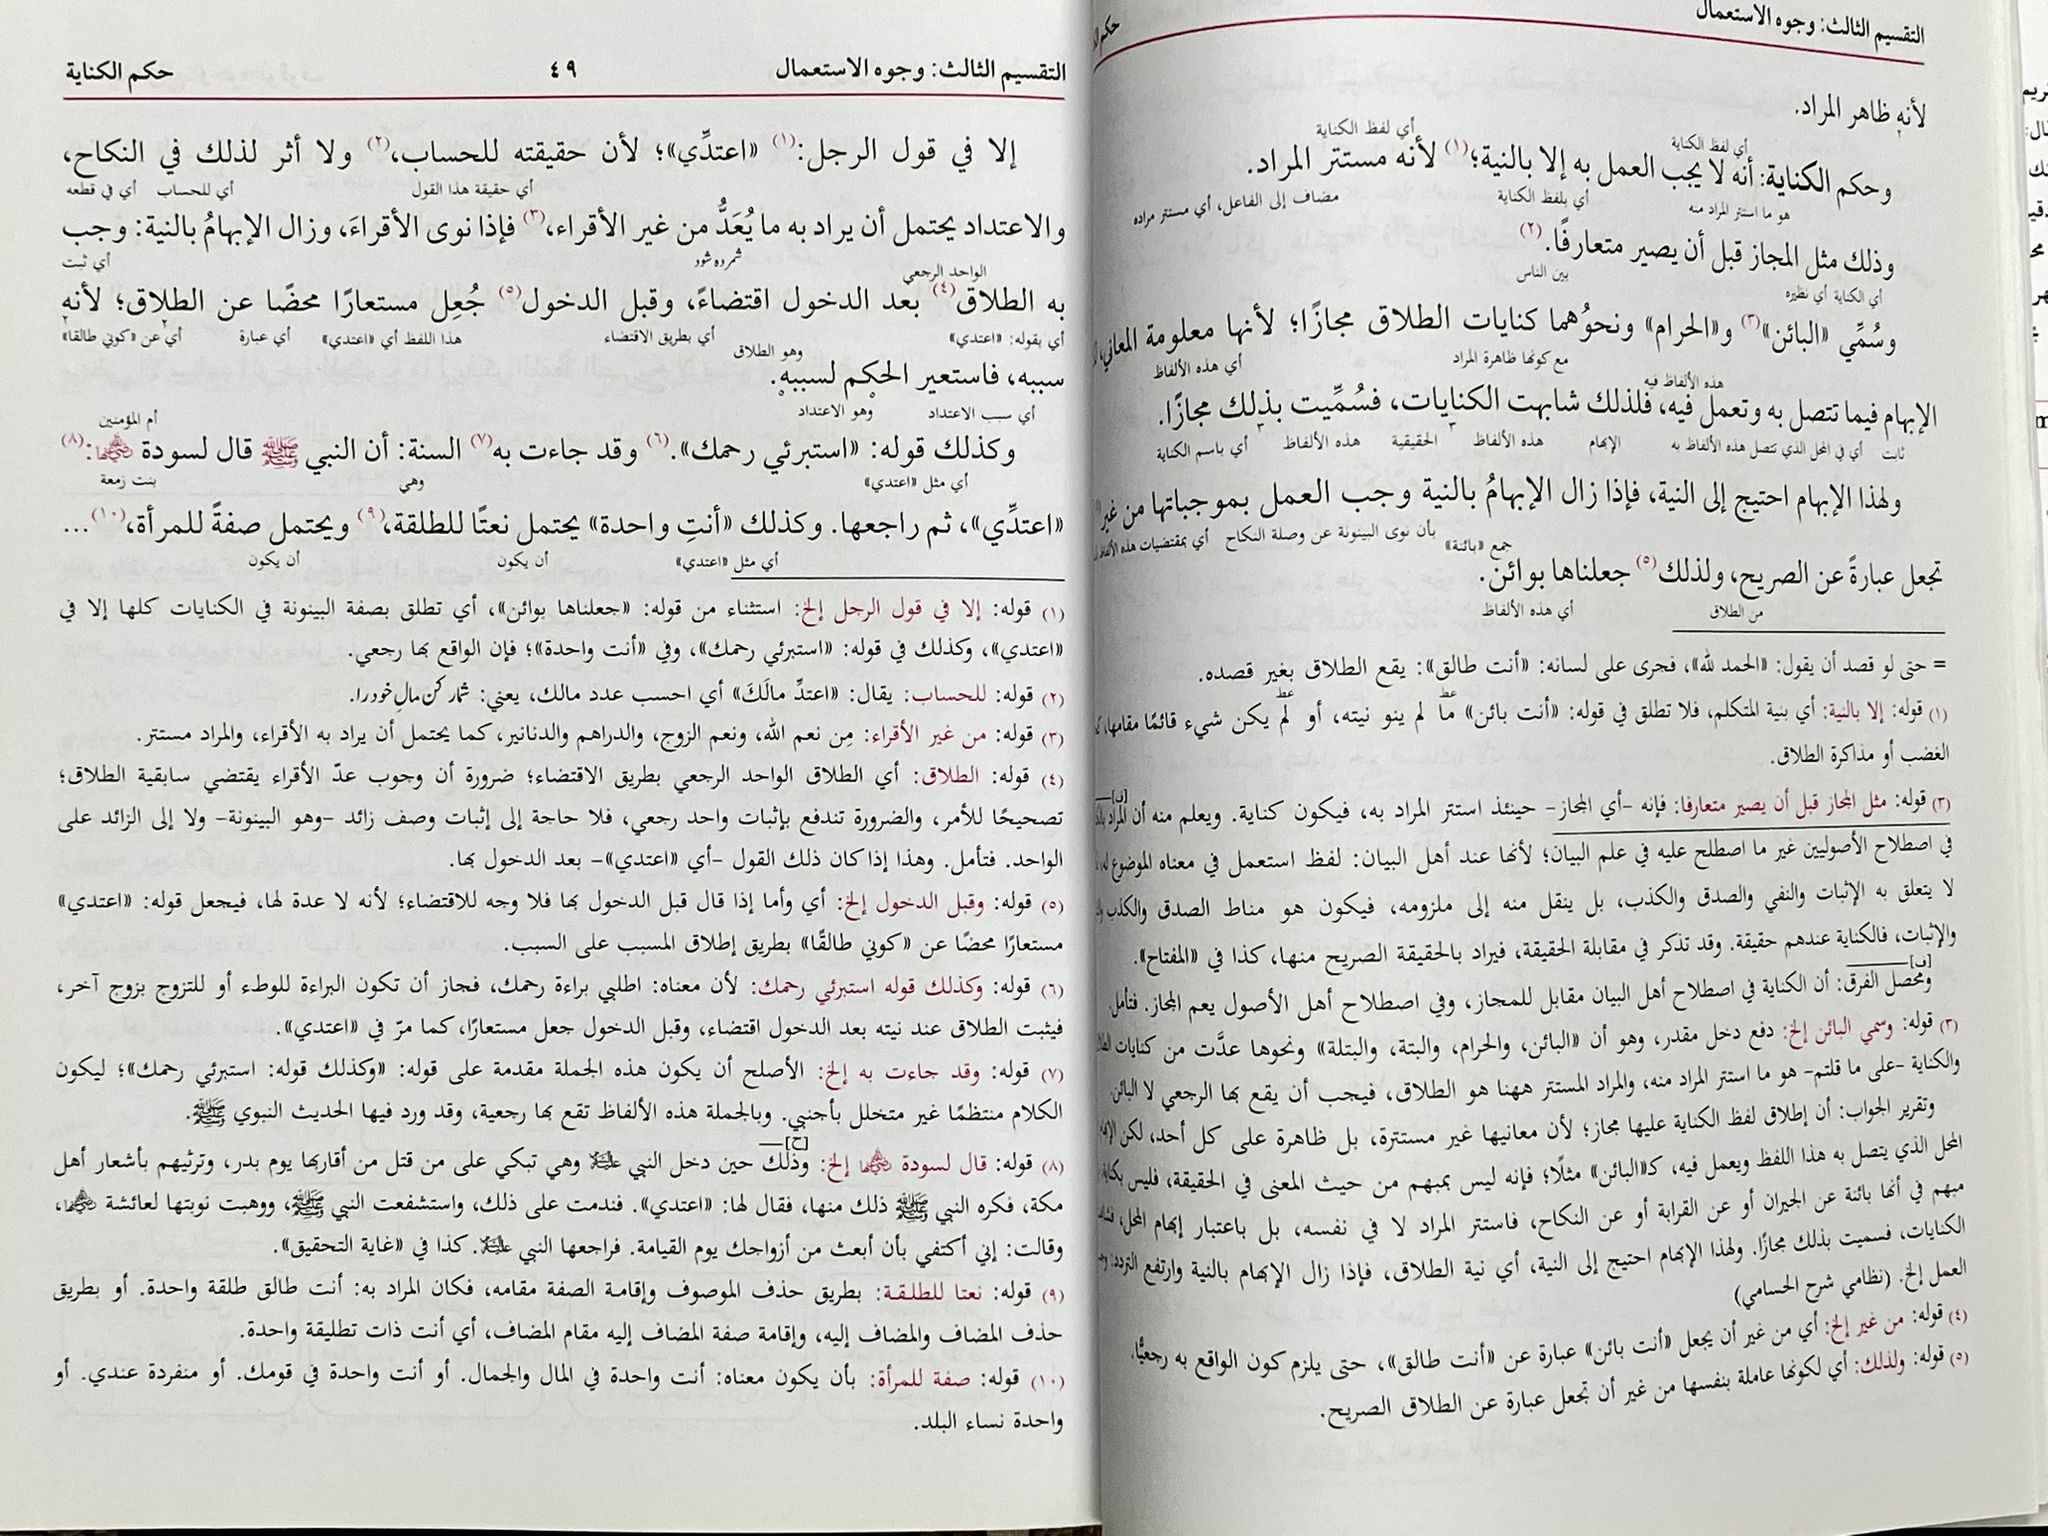 التقسيم الثالث: وجوه الاستعمال
لأنه ظاهر المراد.
أي لفظ الكناية أي لفظ الكناية
وحكم الكناية: أنه لا يجب العمل به إلا بالنية؛(١) لأنه مستتر المراد.
هو ما استتر المراد منه أي بلفظ الكناية مضاف إلى الفاعل، أي مستتر مراده
وذلك مثل المجاز قبل أن يصير متعارفًا.(٢)
أي الكناية أي نظيره بين الناس
وسُمِّي «البائن»(٣) و«الحرام» ونحوُهما كنايات الطلاق مجازًا؛ لأنها معلومة المعاني،
مع كونها ظاهرة المراد أي هذه الألفاظ
هذه الألفاظ فيه
الإبهام فيما تتصل به وتعمل فيه، فلذلك شابهت الكنايات، فسُمِّيت بذلك مجازًا.
ثابت أي في المحل الذي تتصل هذه الألفاظ به الإبهام هذه الألفاظ الحقيقية هذه الألفاظ أي باسم الكناية
ولهذا الإبهام احتيج إلى النية، فإذا زال الإبهامُ بالنية وجب العمل بموجباتها من غير
جمع «بائنة» بأن نوى البينونة عن وصلة النكاح أي بمقتضيات هذه الألفاظ
تجعل عبارةً عن الصريح، ولذلك(٥) جعلناها بوائن.
من الطلاق أي هذه الألفاظ
= حتى لو قصد أن يقول: «الحمد لله»، فجرى على لسانه: «أنت طالق»: يقع الطلاق بغير قصده.
(١) قوله: إلا بالنية: أي بنية المتكلم، فلا تطلق في قوله: «أنت بائن» ما لم ينو نيته، أو لم يكن شيء قائمًا مقامها،
الغضب أو مذاكرة الطلاق.
(٢) قوله: مثل المجاز قبل أن يصير متعارفا: فإنه -أي المجاز- حينئذ استتر المراد به، فيكون كناية. ويعلم منه أن المراد
في اصطلاح الأصوليين غير ما اصطلح عليه في علم البيان؛ لأنها عند أهل البيان: لفظ استعمل في معناه الموضوع له،
لا يتعلق به الإثبات والنفي والصدق والكذب، بل ينقل منه إلى ملزومه، فيكون هو مناط الصدق والكذب
والإثبات، فالكناية عندهم حقيقة. وقد تذكر في مقابلة الحقيقة، فيراد بالحقيقة الصريح منها، كذا في «المفتاح».
ومحصل الفرق: أن الكناية في اصطلاح أهل البيان مقابل للمجاز، وفي اصطلاح أهل الأصول يعم المجاز. فتأمل.
(٣) قوله: وسمي البائن إلخ: دفع دخل مقدر، وهو أن «البائن، والحرام، والبتة، والبتلة» ونحوها عدَّت من كنايات
والكناية -على ما قلتم- هو ما استتر المراد منه، والمراد المستتر ههنا هو الطلاق، فيجب أن يقع بها الرجعي لا البائن.
وتقرير الجواب: أن إطلاق لفظ الكناية عليها مجاز؛ لأن معانيها غير مستترة، بل ظاهرة على كل أحد، لكن
المحل الذي يتصل به هذا اللفظ ويعمل فيه، كـ«البائن» مثلًا؛ فإنه ليس بمبهم من حيث المعنى في الحقيقة، فليس
مبهم في أنها بائنة عن الجيران أو عن القرابة أو عن النكاح، فاستتر المراد لا في نفسه، بل باعتبار إبهام المحل،
الكنايات، فسميت بذلك مجازًا. ولهذا الإبهام احتيج إلى النية، أي نية الطلاق، فإذا زال الإبهام بالنية وارتفع التردد:
العمل إلخ. (نظامي شرح الحسامي)
(٤) قوله: من غير إلخ: أي من غير أن يجعل «أنت بائن» عبارة عن «أنت طالق»، حتى يلزم كون الواقع به رجعيًّا.
(٥) قوله: ولذلك: أي لكونها عاملة بنفسها من غير أن تجعل عبارة عن الطلاق الصريح.
التقسيم الثالث: وجوه الاستعمال ٤٩ حكم الكناية
إلا في قول الرجل:(١) «اعتدِّي»؛ لأن حقيقته للحساب،(٢) ولا أثر لذلك في النكاح،
أي حقيقة هذا القول أي للحساب أي في قطعه
والاعتداد يحتمل أن يراد به ما يُعَدُّ من غير الأقراء،(٣) فإذا نوى الأقراءَ، وزال الإبهامُ بالنية: وجب
شمرده شود أي ثبت
الواحد الرجعي
به الطلاق(٤) بعد الدخول اقتضاءً، وقبل الدخول(٥) جُعِل مستعارًا محضًا عن الطلاق؛ لأنه
أي بقوله: «اعتدي» أي بطريق الاقتضاء هذا اللفظ أي «اعتدي» أي عبارة أي عن «كوني طالقا»
وهو الطلاق
سببه، فاستعير الحكم لسببه.
أي سبب الاعتداد وهو الاعتداد
أم المؤمنين
وكذلك قوله: «استبرئي رحمك».(٦) وقد جاءت به(٧) السنة: أن النبي ﷺ قال لسودة رضي الله عنها:(٨)
أي مثل «اعتدي» وهي بنت زمعة
«اعتدِّي»، ثم راجعها. وكذلك «أنتِ واحدة» يحتمل نعتًا للطلقة،(٩) ويحتمل صفةً للمرأة،(١٠) ...
أي مثل «اعتدي» أن يكون أن يكون
(١) قوله: إلا في قول الرجل إلخ: استثناء من قوله: «جعلناها بوائن»، أي تطلق بصفة البينونة في الكنايات كلها إلا في
«اعتدي»، وكذلك في قوله: «استبرئي رحمك»، وفي «أنت واحدة»؛ فإن الواقع بها رجعي.
(٢) قوله: للحساب: يقال: «اعتدِّ مالَكَ» أي احسب عدد مالك، يعني: شمار کن مالِ خود را.
(٣) قوله: من غير الأقراء: مِن نعم الله، ونعم الزوج، والدراهم والدنانير، كما يحتمل أن يراد به الأقراء، والمراد مستتر.
(٤) قوله: الطلاق: أي الطلاق الواحد الرجعي بطريق الاقتضاء؛ ضرورة أن وجوب عدّ الأقراء يقتضي سابقية الطلاق؛
تصحيحًا للأمر، والضرورة تندفع بإثبات واحد رجعي، فلا حاجة إلى إثبات وصف زائد -وهو البينونة- ولا إلى الزائد على
الواحد. فتأمل. وهذا إذا كان ذلك القول -أي «اعتدي»- بعد الدخول بها.
(٥) قوله: وقبل الدخول إلخ: أي وأما إذا قال قبل الدخول بها فلا وجه للاقتضاء؛ لأنه لا عدة لها، فيجعل قوله: «اعتدي»
مستعارًا محضًا عن «كوني طالقًا» بطريق إطلاق المسبب على السبب.
(٦) قوله: وكذلك قوله استبرئي رحمك: لأن معناه: اطلبي براءة رحمك، فجاز أن تكون البراءة للوطء أو للتزوج بزوج آخر،
فيثبت الطلاق عند نيته بعد الدخول اقتضاء، وقبل الدخول جعل مستعارًا، كما مرّ في «اعتدي».
(٧) قوله: وقد جاءت به إلخ: الأصلح أن يكون هذه الجملة مقدمة على قوله: «وكذلك قوله: استبرئي رحمك»؛ ليكون
الكلام منتظمًا غير متخلل بأجنبي. وبالجملة هذه الألفاظ تقع بها رجعية، وقد ورد فيها الحديث النبوي ﷺ.
(٨) قوله: قال لسودة رضي الله عنها إلخ: وذلك حين دخل النبي عليه السلام وهي تبكي على من قتل من أقاربها يوم بدر، وترثيهم بأشعار أهل
مكة، فكره النبي ﷺ ذلك منها، فقال لها: «اعتدي». فندمت على ذلك، واستشفعت النبي ﷺ، ووهبت نوبتها لعائشة رضي الله عنها،
وقالت: إني أكتفي بأن أبعث من أزواجك يوم القيامة. فراجعها النبي عليه السلام. كذا في «غاية التحقيق».
(٩) قوله: نعتا للطلقة: بطريق حذف الموصوف وإقامة الصفة مقامه، فكان المراد به: أنت طالق طلقة واحدة. أو بطريق
حذف المضاف والمضاف إليه، وإقامة صفة المضاف إليه مقام المضاف، أي أنت ذات تطليقة واحدة.
(١٠) قوله: صفة للمرأة: بأن يكون معناه: أنت واحدة في المال والجمال. أو أنت واحدة في قومك. أو منفردة عندي. أو
واحدة نساء البلد.